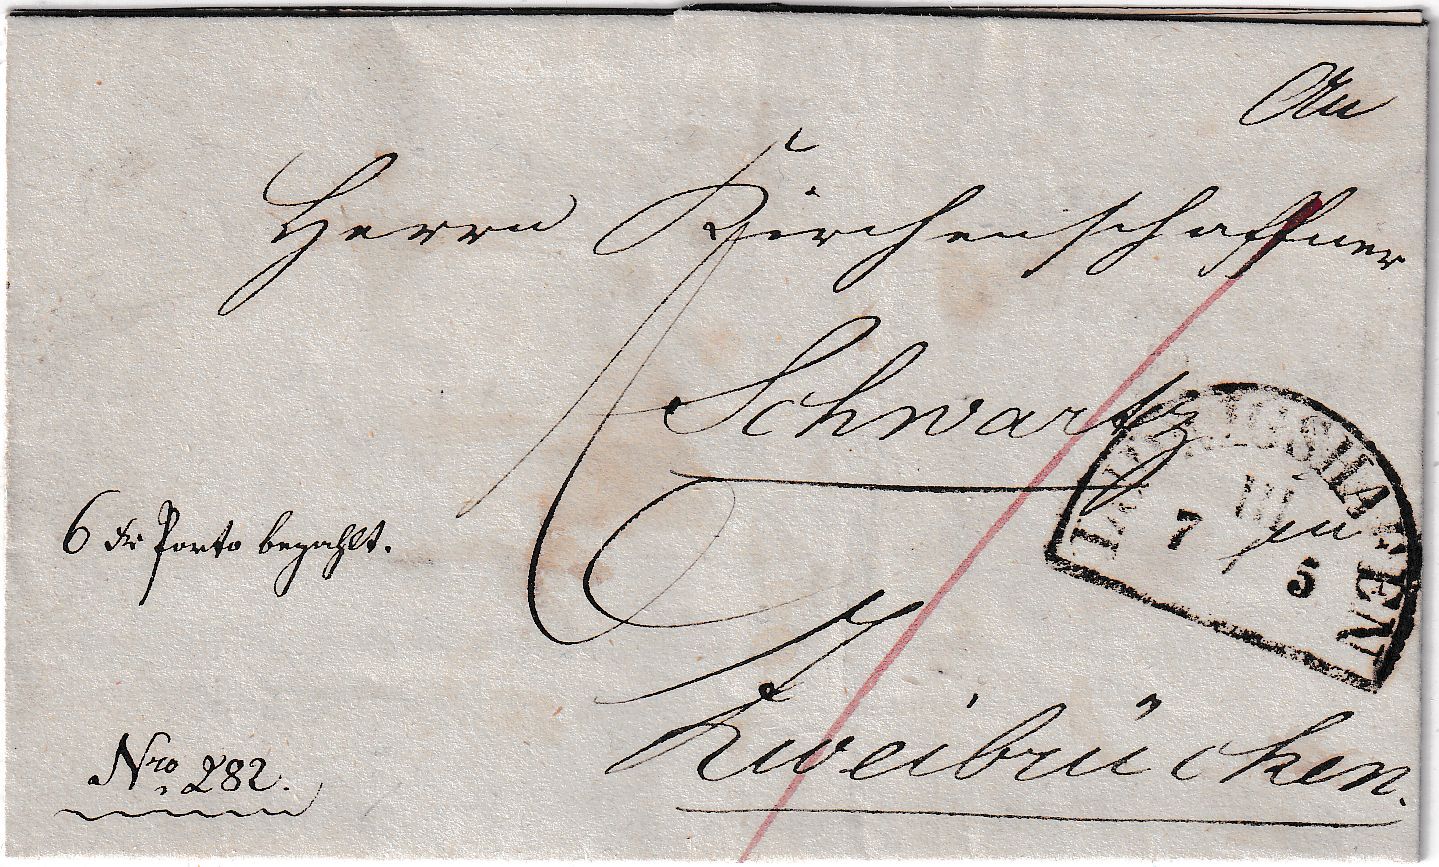 An
Herrn Kirchenschaffner
Schwartz
zu
Zweibrücken.
6 Kr Porto bezahlt.
Nro 282.
LUDWIGSHAFEN
III
7 5